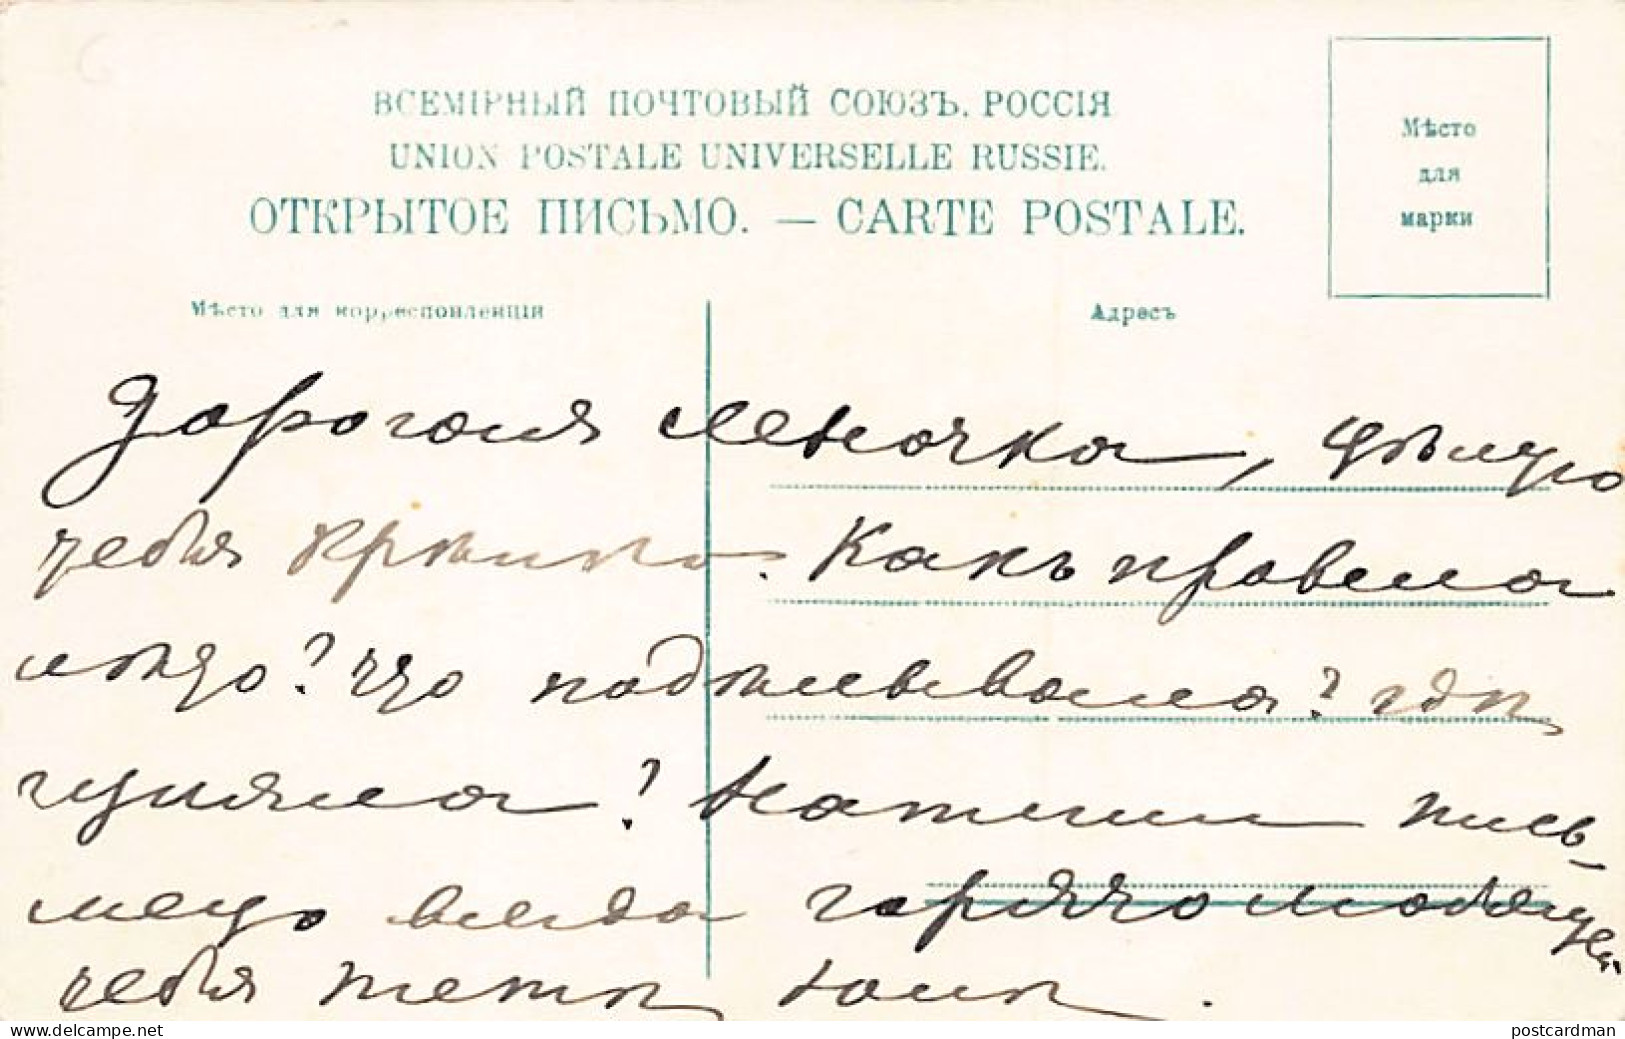 ВСЕМІРНЫЙ ПОЧТОВЫЙ СОЮЗЪ. РОССІЯ
UNION POSTALE UNIVERSELLE RUSSIE.
ОТКРЫТОЕ ПИСЬМО. — CARTE POSTALE.
Мѣсто
для
марки
Мѣсто для корреспонденціи
Адресъ
Дорогая Леночка, цѣлую
тебя крѣпко. Какъ провела
лѣто? Что подѣлывала? гдѣ
гуляла? Напиши пись-
мецо всегда горячо любящей
тебя тети Юли.
postcardman